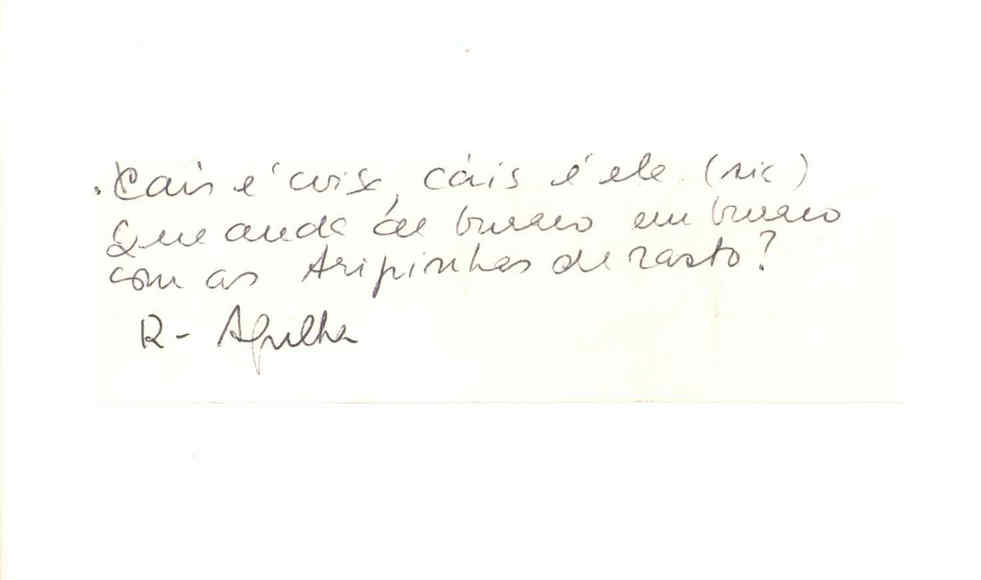 . Cais é coisa, cáis é ele (sic)
Que anda de buraco em buraco
com as tripinhas de rasto?
R- Agulha